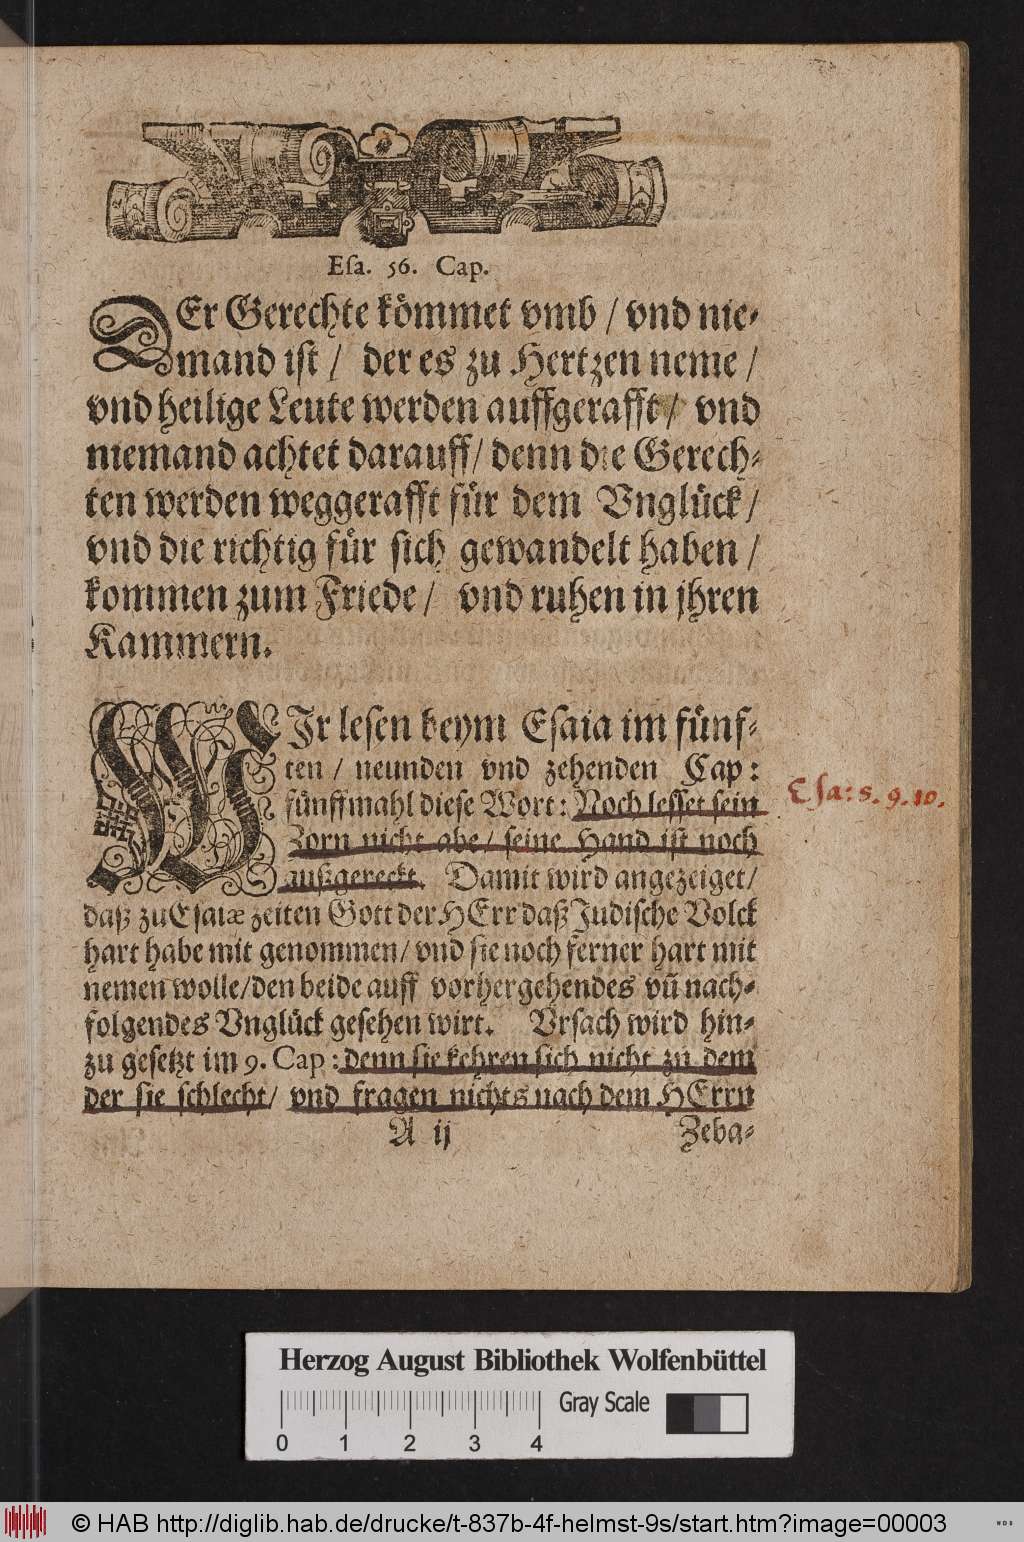 Esa. 56. Cap.
DEr Gerechte kömmet vmb / vnd nie-
mand ist / der es zu Hertzen neme /
vnd heilige Leute werden auffgerafft / vnd
niemand achtet darauff / denn die Gerech-
ten werden weggerafft für dem Vnglück /
vnd die richtig für sich gewandelt haben /
kommen zum Friede / vnd ruhen in jhren
Kammern.
WIr lesen beym Esaia im fünf-
ten / neunden vnd zehenden Cap:
fünffmahl diese Wort: Noch lesset sein
Zorn nicht abe / seine Hand ist noch
außgereckt. Damit wird angezeiget /
daß zu Esaiæ zeiten Gott der HErr daß Jüdische Volck
hart habe mit genommen / vnd sie noch ferner hart mit
nemen wolle / den beide auff vorhergehendes vñ nach-
folgendes Vnglück gesehen wirt. Vrsach wird hin-
zu gesetzt im 9. Cap: denn sie kehren sich nicht zu dem
der sie schlecht / vnd fragen nichts nach dem HErrn
A ij Zeba-
Esa: 5. 9. 10.
Herzog August Bibliothek Wolfenbüttel
Gray Scale
0 1 2 3 4
© HAB http://diglib.hab.de/drucke/t-837b-4f-helmst-9s/start.htm?image=00003
WDB